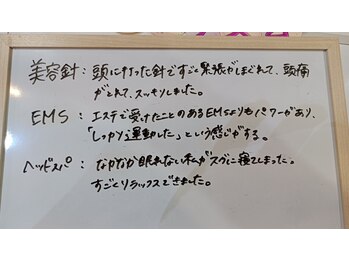 美容針：頭に打った針ですごく緊張がほぐれて、頭痛
がとれて、スッキリしました。
EMS：エステで受けたことのあるEMSよりもパワーがあり、
「しっかり運動した」という感じがする。
ヘッドスパ：なかなか眠れない私がスグに寝てしまった。
すごくリラックスできました。